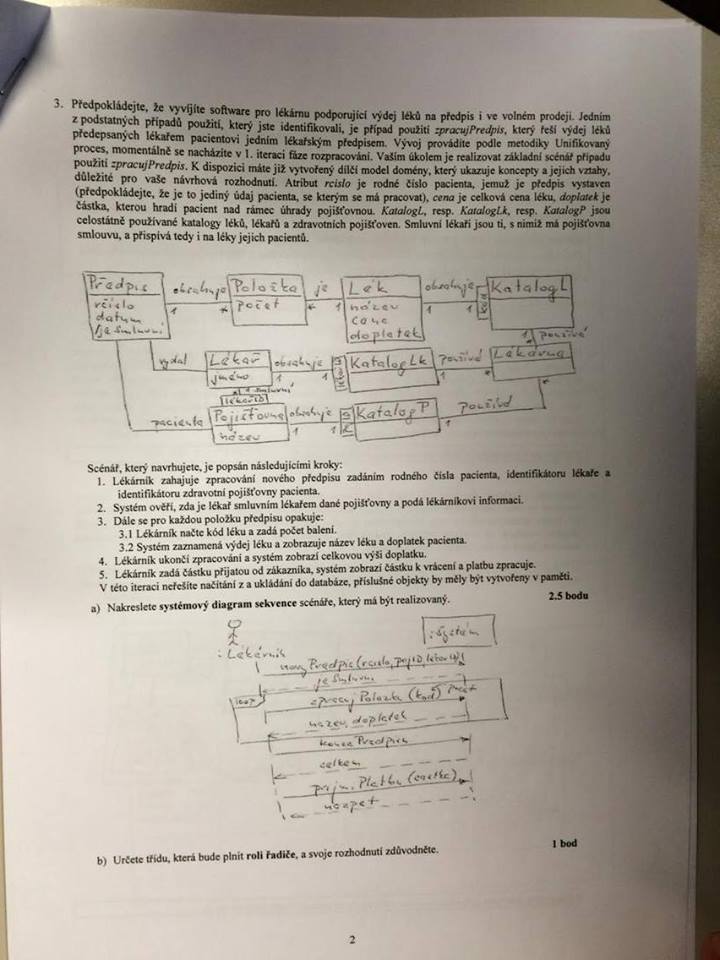 3. Předpokládejte, že vyvíjíte software pro lékárnu podporující výdej léků na předpis i ve volném prodeji. Jedním
z podstatných případů použití, který jste identifikovali, je případ použití zpracujPredpis, který řeší výdej léků
předepsaných lékařem pacientovi jedním lékařským předpisem. Vývoj provádíte podle metodiky Unifikovaný
proces, momentálně se nacházíte v 1. iteraci fáze rozpracování. Vaším úkolem je realizovat základní scénář případu
použití zpracujPredpis. K dispozici máte již vytvořený dílčí model domény, který ukazuje koncepty a jejich vztahy,
důležité pro vaše návrhová rozhodnutí. Atribut rcislo je rodné číslo pacienta, jemuž je předpis vystaven
(předpokládejte, že je to jediný údaj pacienta, se kterým se má pracovat), cena je celková cena léku, doplatek je
částka, kterou hradí pacient nad rámec úhrady pojišťovnou. KatalogL, resp. KatalogLk, resp. KatalogP jsou
celostátně používané katalogy léků, lékařů a zdravotních pojišťoven. Smluvní lékaři jsou ti, s nimiž má pojišťovna
smlouvu, a přispívá tedy i na léky jejich pacientů.
Předpis obsahuje Položka je Lék obsahuje KatalogL
rčislo počet název
datum 1 * * 1 cena 1 1
/jeSmluvní doplatek 1 používá
vydal Lékař obsahuje KatalogLk používá Lékárna
jméno 1 1 1
smluvní
lékařID
pacienta Pojišťovna obsahuje KatalogP používá
název 1 1 1
Scénář, který navrhujete, je popsán následujícími kroky:
1. Lékárník zahajuje zpracování nového předpisu zadáním rodného čísla pacienta, identifikátoru lékaře a
identifikátoru zdravotní pojišťovny pacienta.
2. Systém ověří, zda je lékař smluvním lékařem dané pojišťovny a podá lékárníkovi informaci.
3. Dále se pro každou položku předpisu opakuje:
3.1 Lékárník načte kód léku a zadá počet balení.
3.2 Systém zaznamená výdej léku a zobrazuje název léku a doplatek pacienta.
4. Lékárník ukončí zpracování a systém zobrazí celkovou výši doplatku.
5. Lékárník zadá částku přijatou od zákazníka, systém zobrazí částku k vrácení a platbu zpracuje.
V této iteraci neřešíte načítání z a ukládání do databáze, příslušné objekty by měly být vytvořeny v paměti.
a) Nakreslete systémový diagram sekvence scénáře, který má být realizovaný. 2.5 bodu
:Lékárník :Systém
novyPredpis(rcislo, pojID, lekarID)
jeSmluvní
loop zpracujPolozku(kod, pocet)
název, doplatek
konecPredpisu
celkem
prijmiPlatbu(castka)
nazpet
b) Určete třídu, která bude plnit roli řadiče, a svoje rozhodnutí zdůvodněte. 1 bod
2